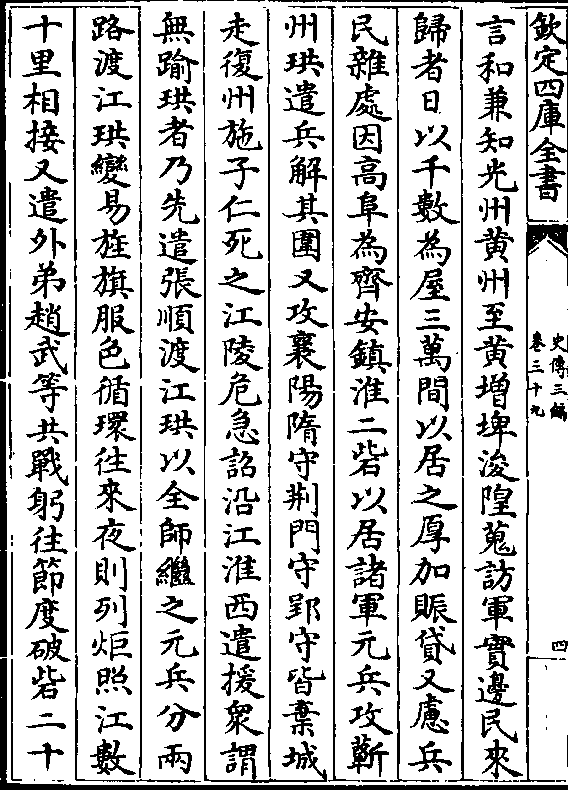 欽定四庫全書
史傳三編
卷三十九
四
言和兼知光州黄州至黄増埤浚隍蒐訪軍實邊民來
歸者日以千數為屋三萬間以居之厚加賑貸又慮兵
民雜處因高阜為齊安鎮淮二砦以居諸軍元兵攻蘄
州珙遣兵解其圍又攻襄陽隋守荆門守郢守皆棄城
走復州施子仁死之江陵危急詔沿江淮西遣援衆謂
無踰珙者乃先遣張順渡江珙以全師繼之元兵分兩
路渡江珙變易旌旗服色循環往來夜則列炬照江數
十里相接又遣外弟趙武等共戰躬往節度破砦二十